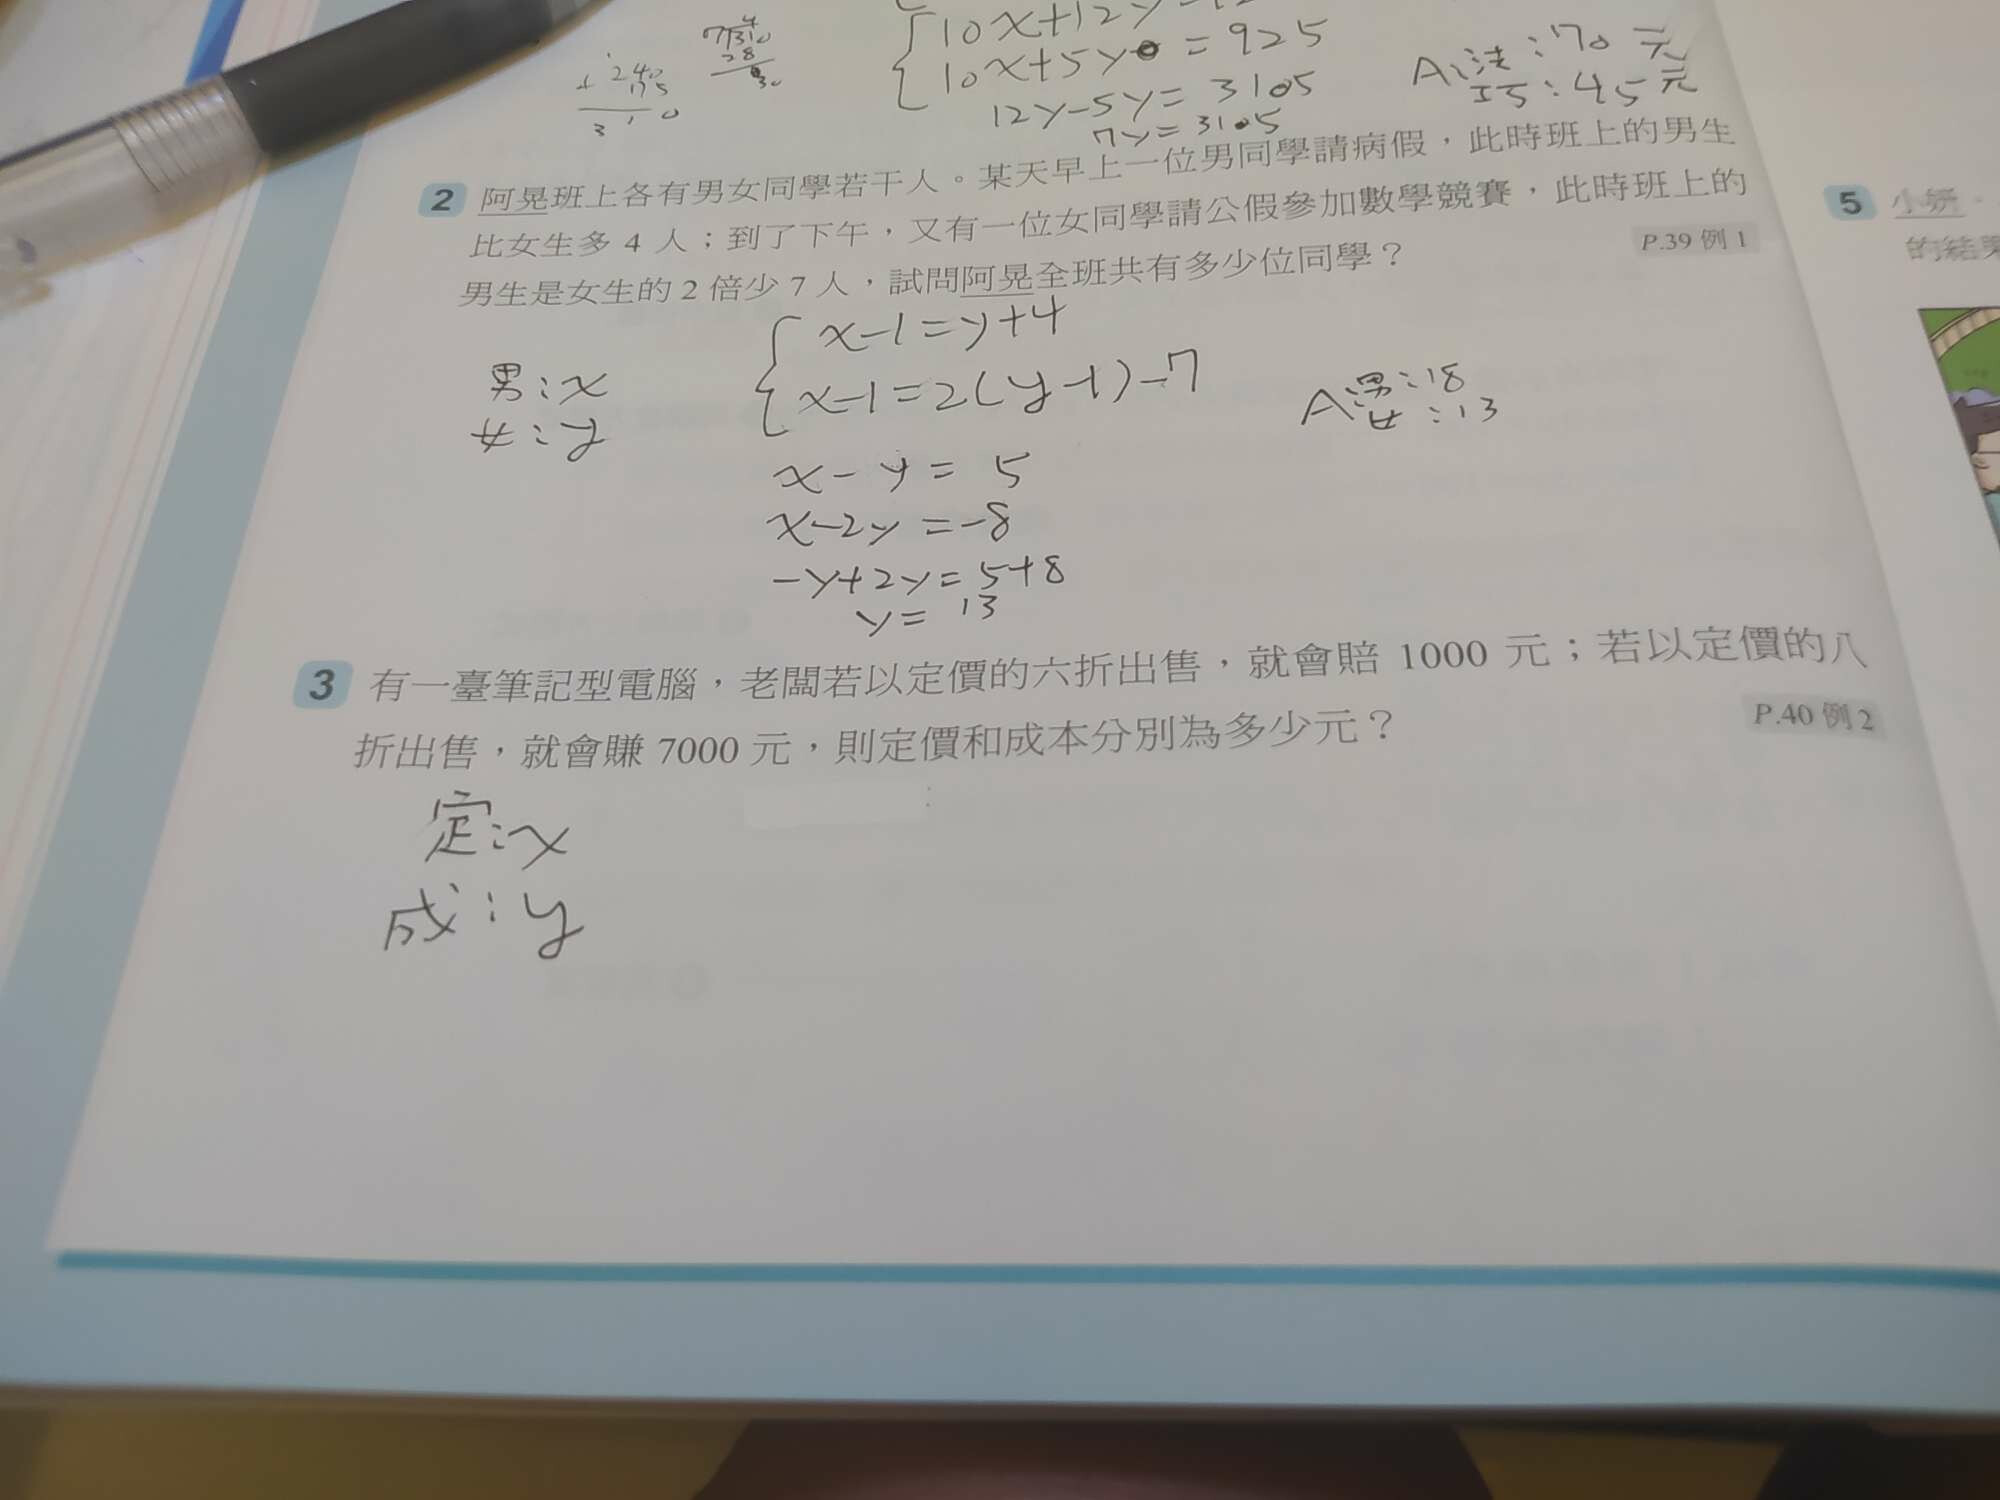 240
+ 175
310
4
7/310
28
30
10x+12y
10x+5y = 925
12y-5y = 3105
7y = 3105
A:法:70元
巧:45元
2 阿晃班上各有男女同學若干人。某天早上一位男同學請病假,此時班上的男生
比女生多 4 人;到了下午,又有一位女同學請公假參加數學競賽,此時班上的
男生是女生的 2 倍少 7 人,試問阿晃全班共有多少位同學?
P.39 例 1
男:x
女:y
x-1=y+4
x-1=2(y-1)-7
A:男:18
女:13
x-y=5
x-2y=-8
-y+2y=5+8
y=13
3 有一臺筆記型電腦,老闆若以定價的六折出售,就會賠 1000 元;若以定價的八
折出售,就會賺 7000 元,則定價和成本分別為多少元?
P.40 例 2
定:x
成:y
5 小妍
的結果